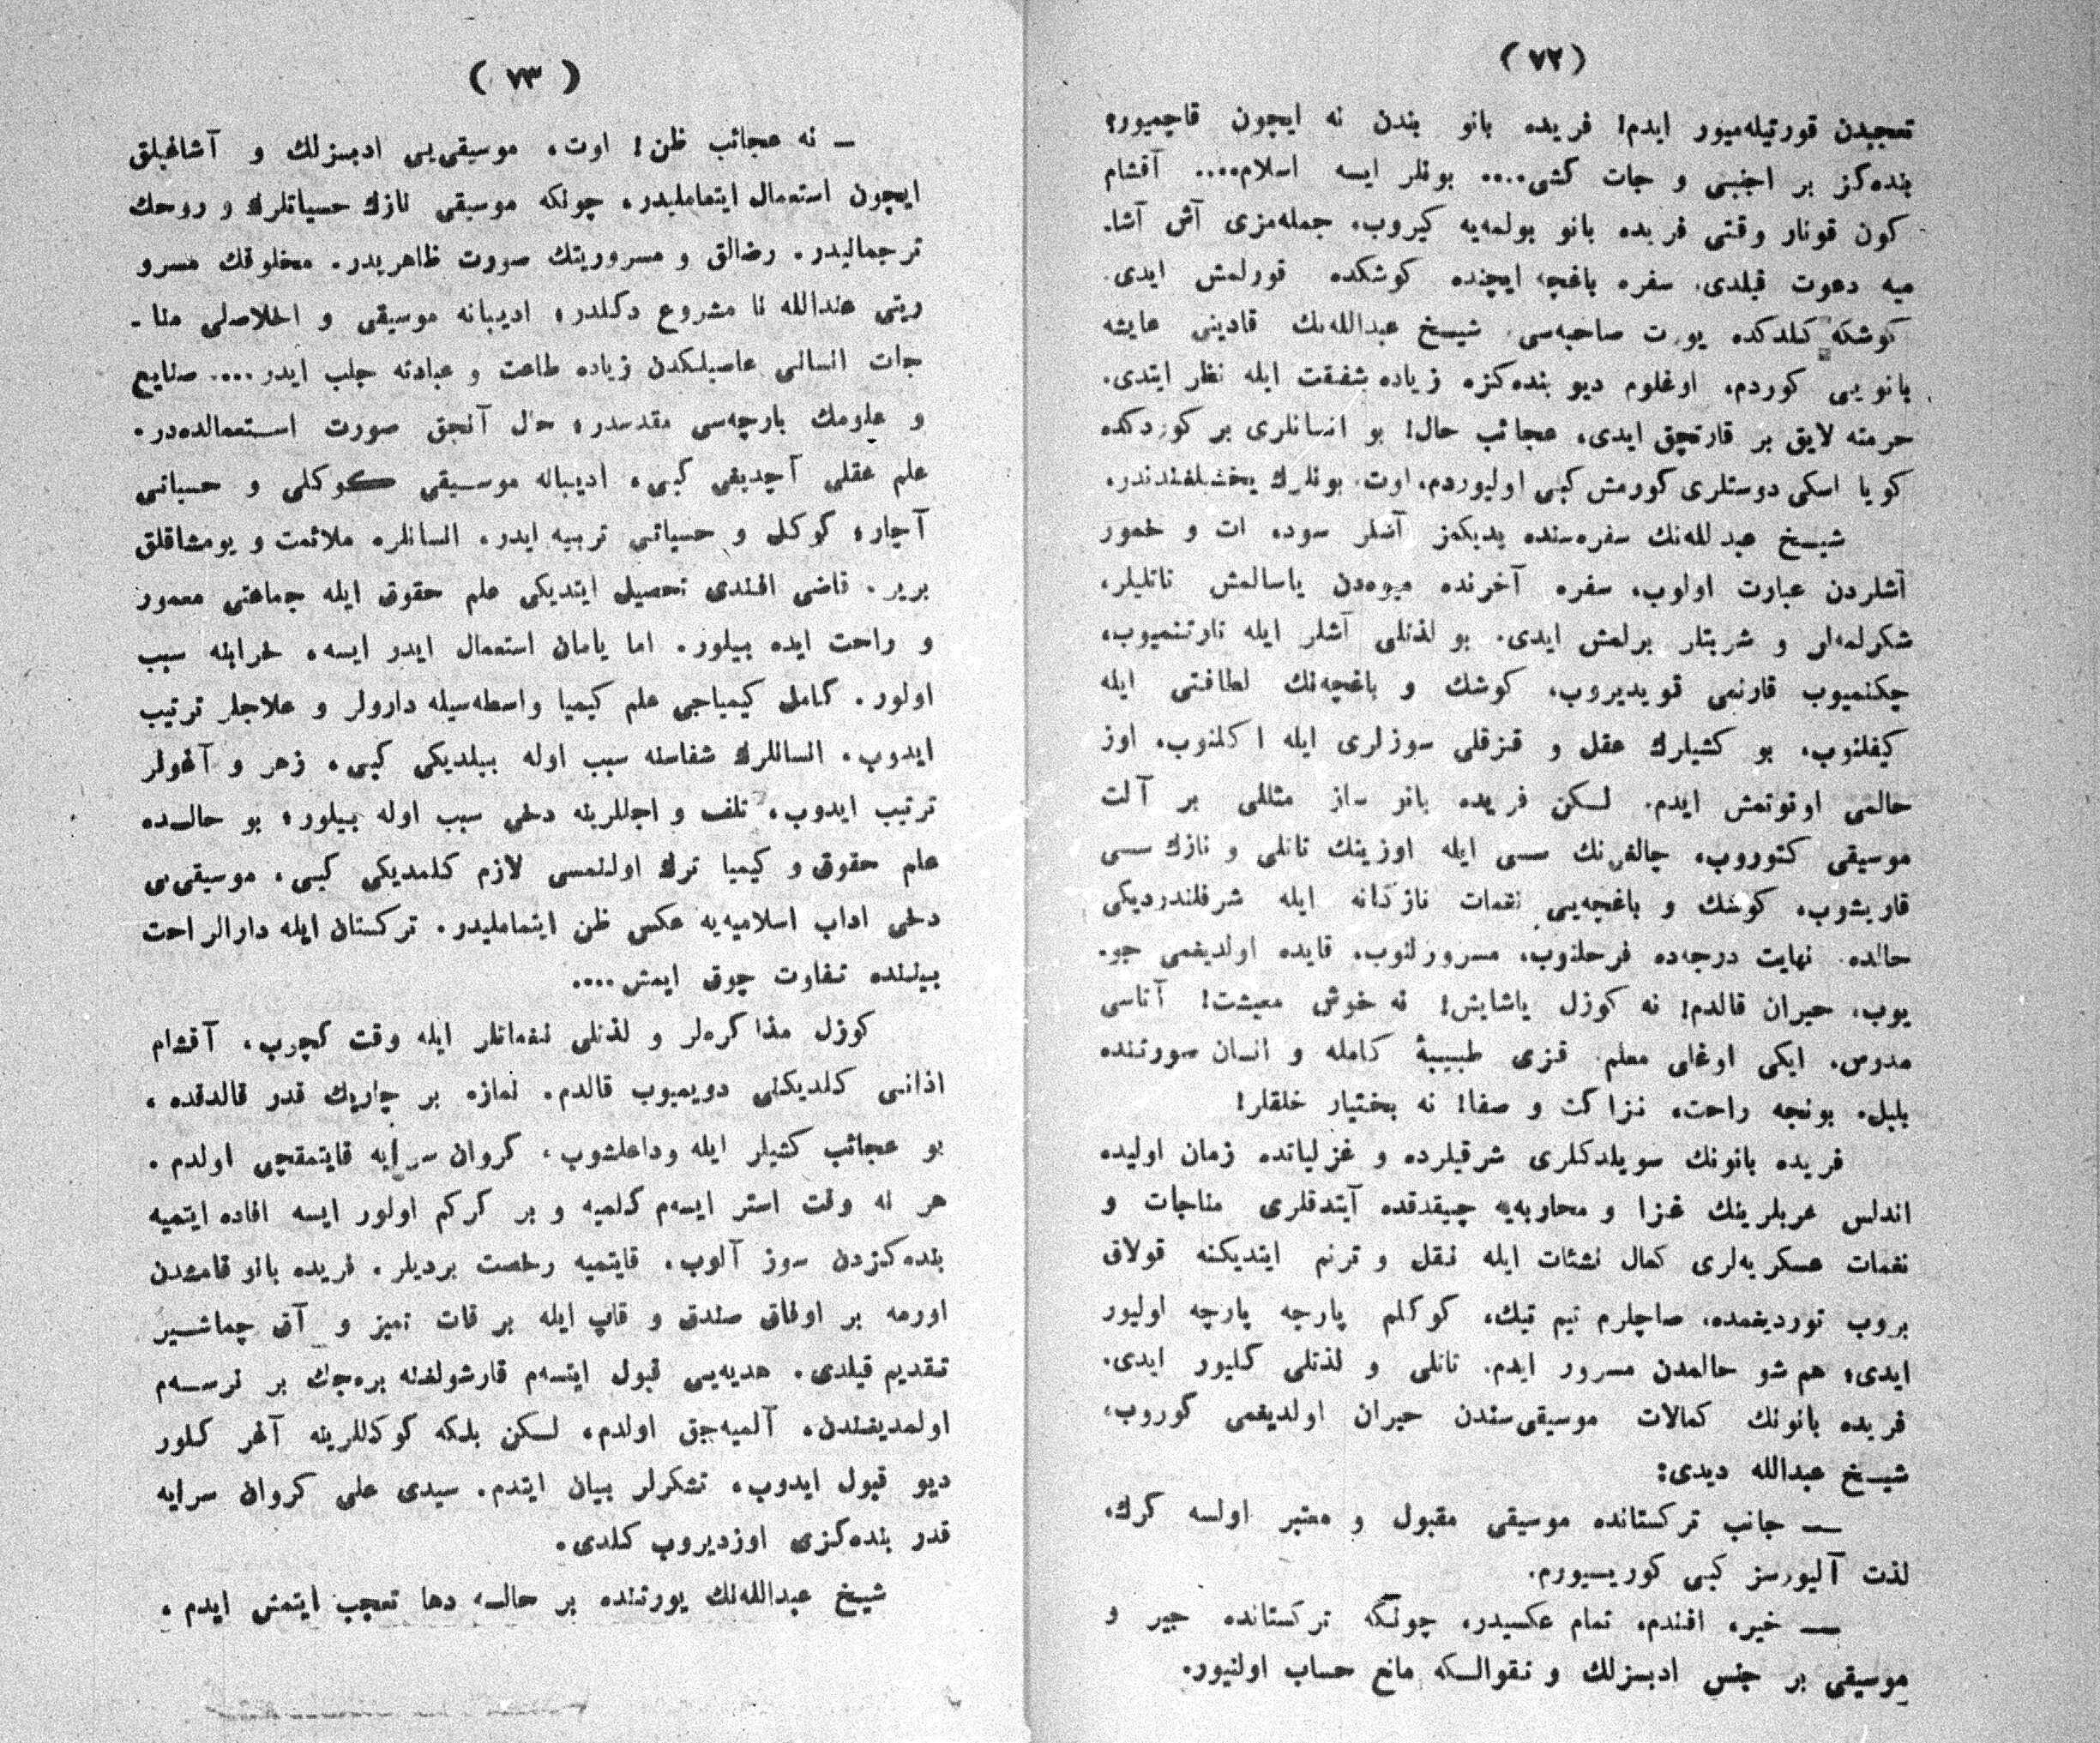 (٧٢)
تعجبدن قورتيله‌ميور ايدم! فريده بانو بندن نه ايچون قاچميور؟
بنده‌كز بر اجنبى و جات كشى.... بونلر ايسه اسلام.... آقشام
كون قونار وقتى فريده بانو بولمه‌يه كيروب، جمله‌مزى آش آشا-
ميه دعوت قيلدى. سفره باغچه ايچنده كوشكده قورلمش ايدى.
كوشكه كلدكده يورت صاحبه‌سى شيخ عبدالله‌نك قادينى عايشه
بانويى كوردم، اوغلوم ديو بنده‌كزه زياده شفقت ايله نظر ايتدى.
حرمته لايق بر قارتچق ايدى، عجائب حال! بو انسانلرى بر كوردكده
كويا اسكى دوستلرى كورمش كبى اوليوردم، اوت، بونلرك يخشيلغندندر.
شيخ عبدلله‌نك سفره‌سنده يديكمز آشلر سود، ات و خمور
آشلردن عبارت اولوب، سفره آخرنده ميوه‌دن ياسالمش تاتليلر،
شكرلمه‌لر و شربتلر برلمش ايدى. بو لذتلى آشلر ايله تارتنميوب،
چكنميوب قارنمى تويديروب، كوشك و باغچه‌نك لطافتى ايله
كيفلنوب، بو كشيلرك عقل و قزقلى سوزلرى ايله اكلنوب، اوز
حالمى اونوتمش ايدم. لكن فريده بانو ساز مثللى بر آلت
موسيقى كتوروب، چالغى‌نك سسى ايله اوزينك تاتلى و نازك سسى
قاريشوب، كوشك و باغچه‌يى نغمات نازكانه ايله شرفلندرديكى
حالده. نهايت درجه‌ده فرحلنوب، مسرورلنوب، قايده اولديغمى جو-
يوب، حيران قالدم! نه كوزل ياشايش! نه خوش معيشت! آتاسى
مدرس، ايكى اوغلى معلم. قزى طبيبۀ كامله و انسان صورتنده
بلبل. بونجه راحت، نزاكت و صفا! نه بختيار خلقلر!
فريده بانونك سويلدكلرى شرقيلرده و غزلياتده زمان اوليده
اندلس عربلرينك غزا و محاربه‌يه چيقدقده آيتدقلرى مناجات و
نغمات عسكريه‌لرى كمال نشئات ايله نقل و ترنم ايتديكنه قولاق
بروب توردیغمده، صاچلرم تيم تيك، كوكلم پارچه پارچه اوليور
ايدى؛ هم شو حالمدن مسرور ايدم. تاتلى و لذتلى كليور ايدى.
فريده بانونك كمالات موسيقى‌سندن حيران اولديغمى كوروب،
شيخ عبدالله ديدى:
— جانب تركستانده موسيقى مقبول و معتبر اولسه كرك،
لذت آليورسز كبى كوريسيورم.
— خير، افندم، تمام عكسيدر، چونكه تركستانده جير و
موسيقى بر جنس ادبسزلك و تقوالكه مانع حساب اولنيور.
(٧٣)
— نه عجائب ظن! اوت، موسيقى‌يى ادبسزلك و آشاغيلق
ايچون استعمال ايتماملیدر، چونكه موسيقى نازك حسياتلرك و روحك
ترجمانيدر. رضالق و مسروريتك صورت ظاهريدر. مخلوقك مسرو
ريتى عندالله نا مشروع دكلدر؛ اديبانه موسيقى و اخلاصلى منا-
جات انسانى عاصيلكدن زياده طاعت و عبادته جلب ايدر.... صنايع
و علومك بارچه‌سى مقدسدر؛ حال آنجق صورت استعمالده‌در.
علم عقلى آچديغى كبى، اديبانه موسيقى كوكلى و حسياتى
آچار؛ كوكل و حسياتى تربيه ايدر. انسانلره ملائمت و يومشاقلق
برير. قاضى افندى تحصيل ايتديكى علم حقوق ايله جماعتى معمور
و راحت ايده بيلور. اما يامان استعمال ايدر ايسه، خرابنه سبب
اولور. كامل كيمياجى علم كيميا واسطه‌سيله دارولر و علاجلر ترتيب
ايدوب، انسانلرك شفاسنه سبب اوله بيلديكى كبى، زهر و آغولر
ترتيب ايدوب، تلف و اجللرينه دخى سبب اوله بيلور؛ بو حالده
علم حقوق و كيميا ترك اولنمسى لازم كلمديكى كبى، موسيقى‌يى
دخى اداب اسلاميه‌يه عكس ظن ايتماملیدر. تركستان ايله دارالراحت
بيننده تفاوت چوق ايمش....
كوزل مذاكره‌لر و لذتلى نغماتلر ايله وقت كچروب، آقشام
اذانى كلديكنى دويميوب قالدم. نمازه بر چاريك قدر قالدقده،
بو عجائب كشيلر ايله وداعلشوب، كروان سرايه قايتمقچى اولدم.
هر نه وقت استر ايسه‌م كلميه و بر كركم اولور ايسه افاده ايتميه
بنده‌كزدن سوز آلوب، قايتميه رخصت برديلر. فريده بانو قامشدن
اورمه بر اوفاق صندق و قاپ ايله بر قات تميز و آق چماشير
تقديم قيلدى. هديه‌يى قبول ايتسه‌م قارشولغنه بره‌جك بر نرسه‌م
اولمديغندن، آلميه‌جق اولدم، لكن بلكه كوكللرينه آغر كلور
ديو قبول ايدوب، تشكرلر بيان ايتدم. سيدى على كروان سرايه
قدر بنده‌كزى اوزديروب كلدى.
شيخ عبدالله‌نك يورتنده بر حالـه دها تعجب ايتمش ايدم،